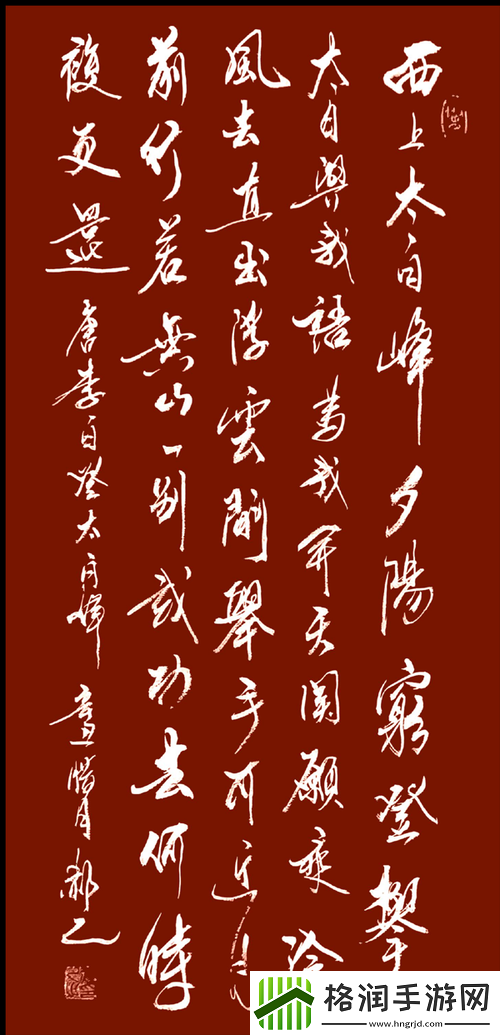 西上太白峰夕陽窮登攀
太白與我語為我開天關願乘泠
風去直出浮雲間舉手可近月
前行若無山一別武功去何時
複更還 唐李白登太白峰 辛丑臘月
格润手游网
www.hngrjd.com